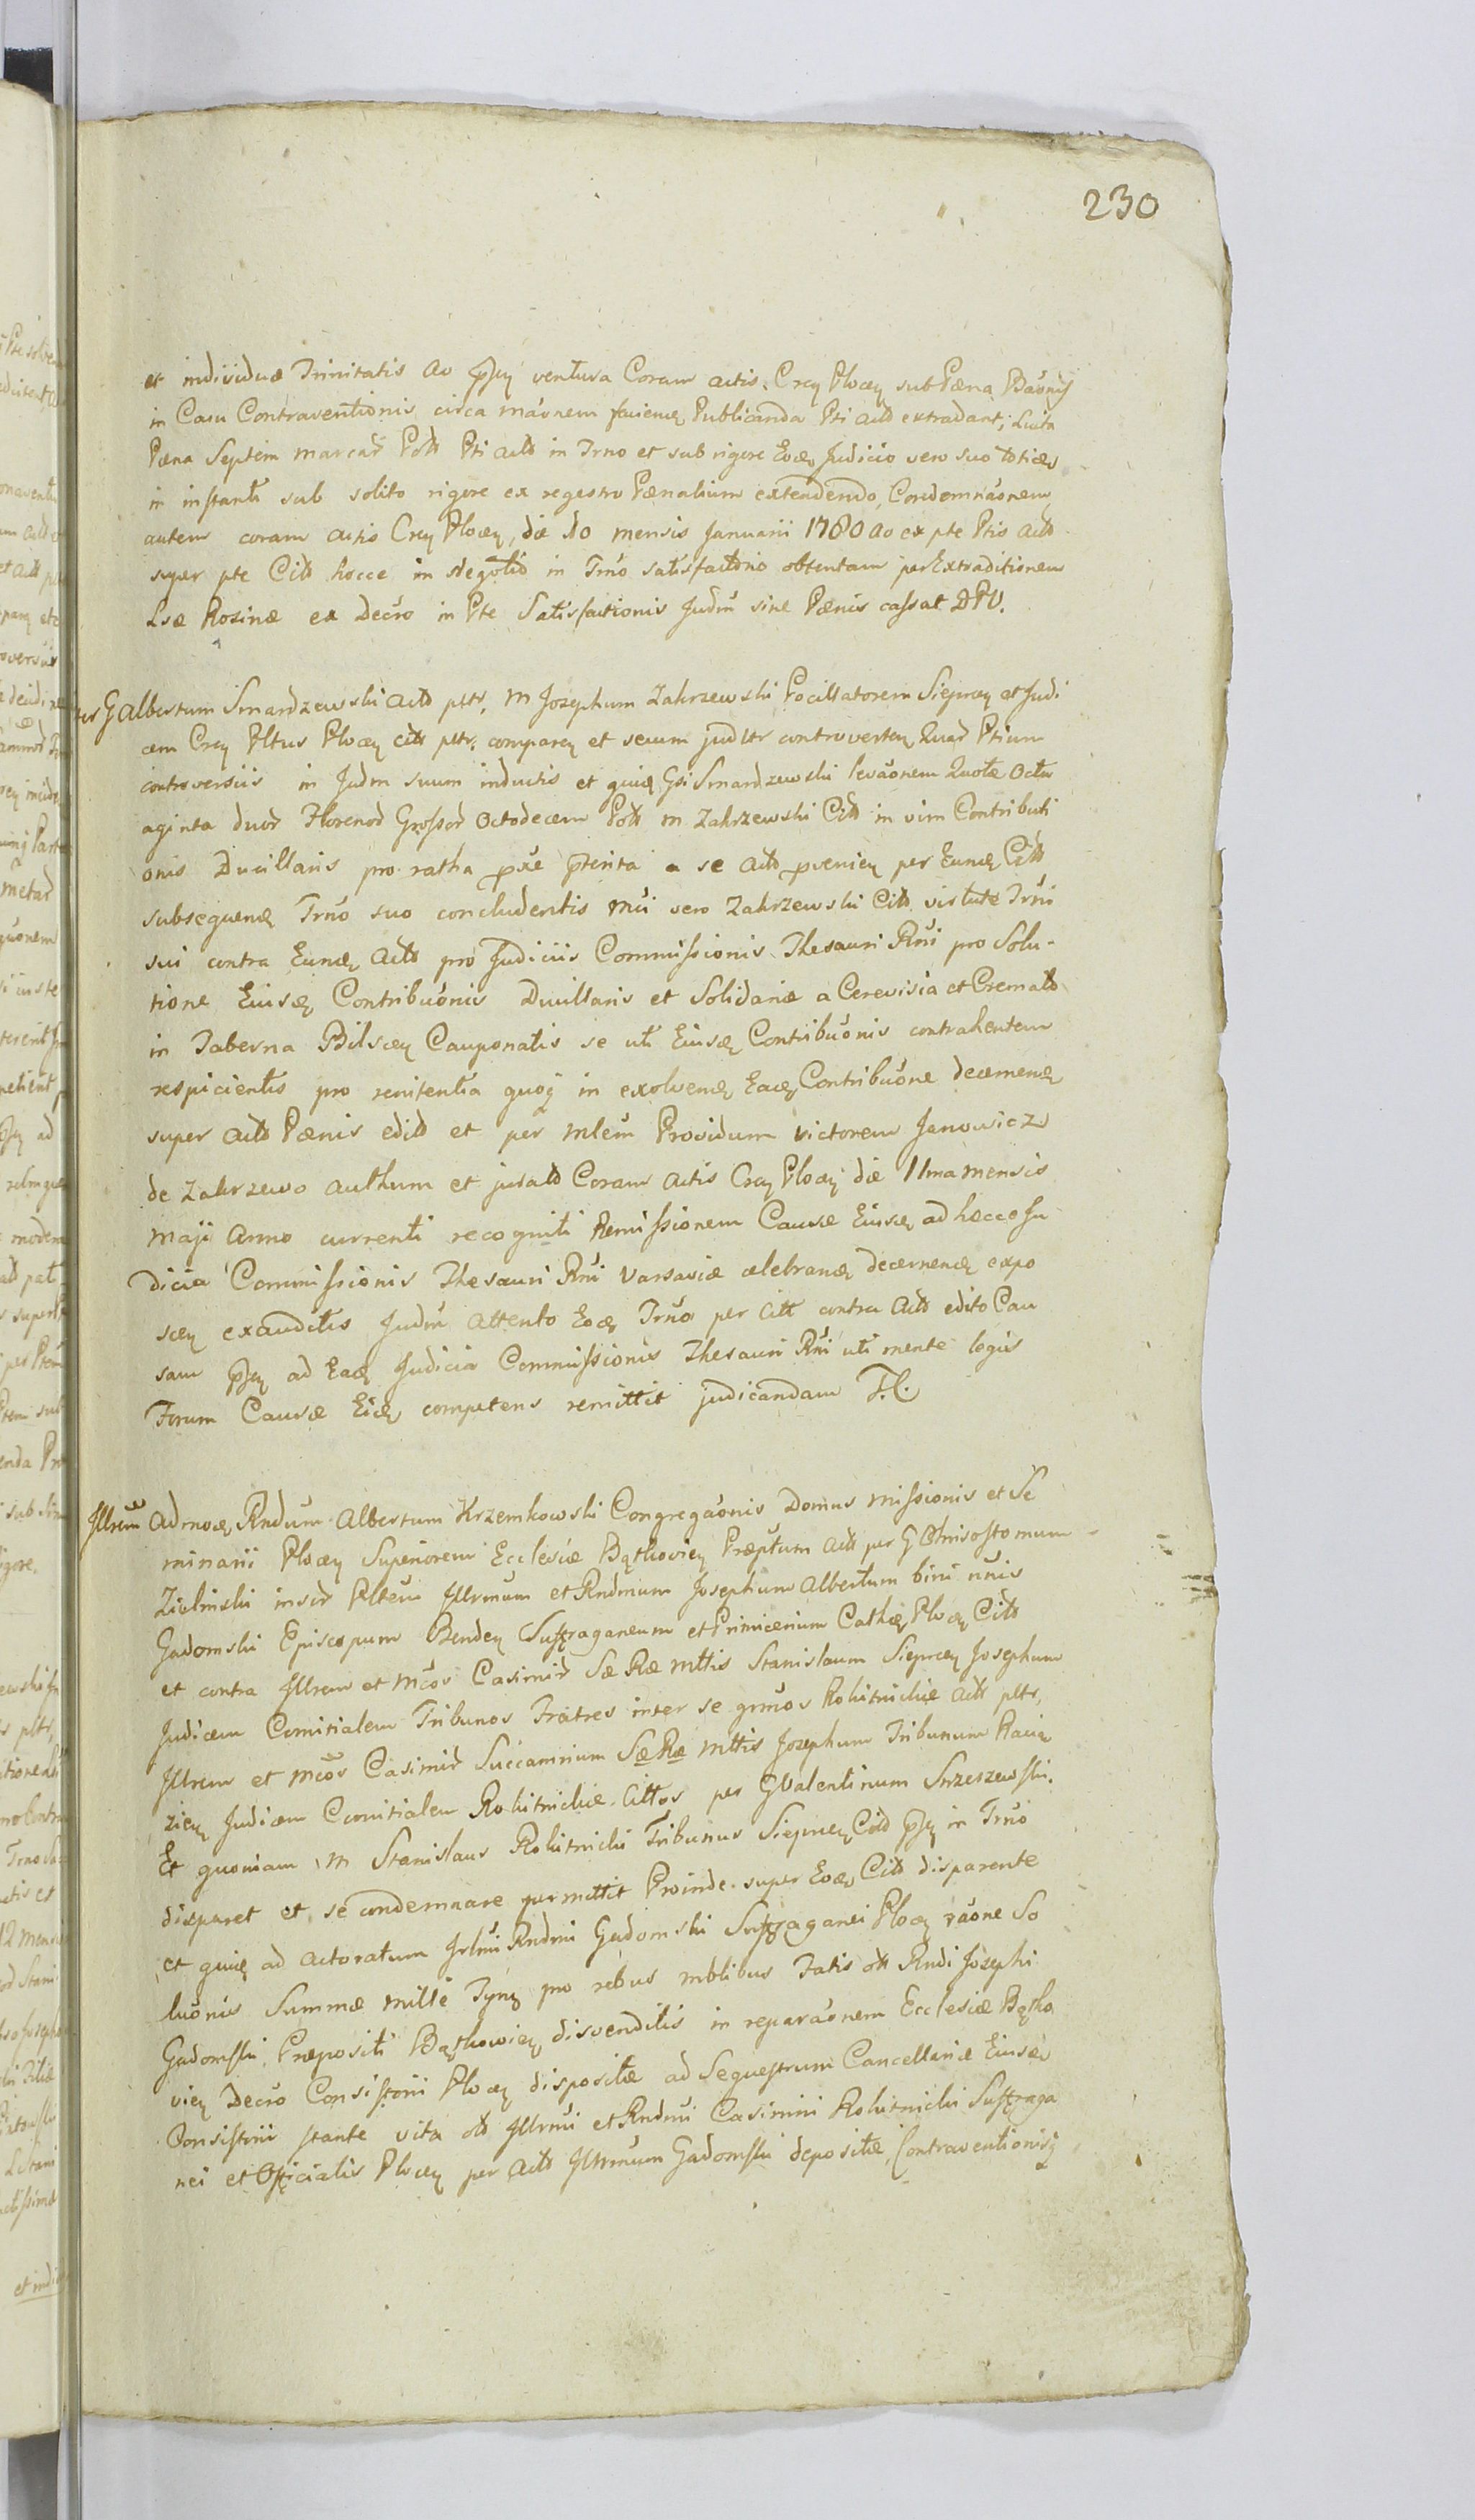 230
et individuæ Trinitatis ao pſq ventura Coram actis Crq Plocq sub Pæna Bãonis
in Casu Contraventionis circa mãonem facienq Publicanda Pti actõ extradant; Luita
Pæna Septem marcarũ Poll Pti actõ in Trno et sub rigore Eoq Judicio vero suo toties
in inſtanti sub solito rigore ex regestro Pænalium extendendo, Condemnãonem
autem coram actis Crq Plocq, die 10 mensis Januarii 1780 ao ex pte Ptis actõ
super pte Citõ hocce in Negotio in Trno satisfactorio obtentam per Extraditionem
Lsæ Rosinæ ex Decro in Pte Satisfactionis Judm sine Pænis caſsat DPU.
Galbertum Smardzewski actõ pltr, m Josephum Zakrzewski Pocillatorem Sieprcq et Judi
cem Crq Pltus Plocq citõ pltr, comparq et secum judltr controvertq Quarũ Ptium
controversiis in Judm suum inductis et quiq Gsi Smardzewski levãonem Quotæ Octu
aginta duorũ Florenorũ Groſsorũ Octodecem Poll m Zakrzewski Citõ in vim Contributi
onis Ducillaris pro ratha pxe pterita a se actõ pvenieq per Eunq Citõ
subsequenq Trno suo concludentis mci vero Zakrzewski Citõ virtute Trni
sui contra Eunq actõ pro Judiciis Commiſsionis Thesauri Rni pro Solu-
tione Eiusq Contribuõnis Ducillaris et Solidariæ a Cerevisia et Cremato
in Taberna Bilscq Cauponatis se uti Eiusq Contribuõnis contrahentem
respicientis pro renitentia quoq in exolvenq Eaq Contribuõne decernenq
super actõ Pænis editõ et per mlem Providum Victorem Janowicz
de Zakrzewo authum et juratõ Coram actis Crq Plocq die 11ma mensis
Maji Anno currenti recogniti Remiſsionem Causæ Eiusq ad hæcce Ju
dicia Commiſsionis Thesauri Rni Varsaviæ celebranq decernenq expo
scq exauditis Judm attento Eoq Trno per Citt contra actõ edito Cau
sam pſq ad Eaq Judicia Commiſsionis Thesauri Rni uti mente legis
Forum Causæ Eiq competens remittit judicandam T.C.
Jllrem Admoq Rndum Albertum Krzemkowski Congregãonis Domus Miſsionis et Se
minarii Plocq Superiorem Eccleſiæ Bątkoviq Præptum actõ per G Chrisoſtomum
Zielinski inserũ Pltem Jllrmum et Rndmum Josephum Albertum bini nnis
Gadomski Episcopum Bendq Suffraganeum et Primicerium Cathq Plocq Citõ
et contra Jllrem et Mcos Casimirũ Sæ Ræ Mttis Stanislaum Sieprcq Josephum
Judicem Comitialem Tribunos Fratres inter se grmos Rokitnickie actõ pltr,
Jllrem et mcos Casimirũ Succamrium Sæ Ræ Mttis Josephum Tribunum Raciq
zieq Judicem Comitialem Rokitnickie Cittos per G Valentinum Strzeszewski.
Et quoniam m Stanislaus Rokitnicki Tribunus Sieprcq Citõ pſq in Trno
disparet et se condemnare permittit Proinde super Eoq Citõ disparente
et quiq ad actoratum Jllmi Rndmi Gadomski Suffraganei Plocq rãone So
luõnis Summæ mille Tynq pro rebus mblibus Fatis olt Rndi Josephi
Gadomski Præpositi Bątkowieq disvenditis in reparãonem Eccleſiæ Bątko
vieq Decro Consiſtorii Plocq dispositæ ad Sequeſtrum Cancellariæ Eiusq
Consiſtorii ſtante vita olt Jllrmi et Rndmi Casimiri Rokitnicki Suffraga
nei et Officialis Plocq per actõ Jllrmum Gadomski depositæ, Contraventionisq